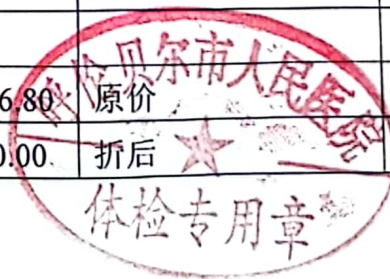 呼伦贝尔市人民医院
6.80 原价
0.00 折后
体检专用章